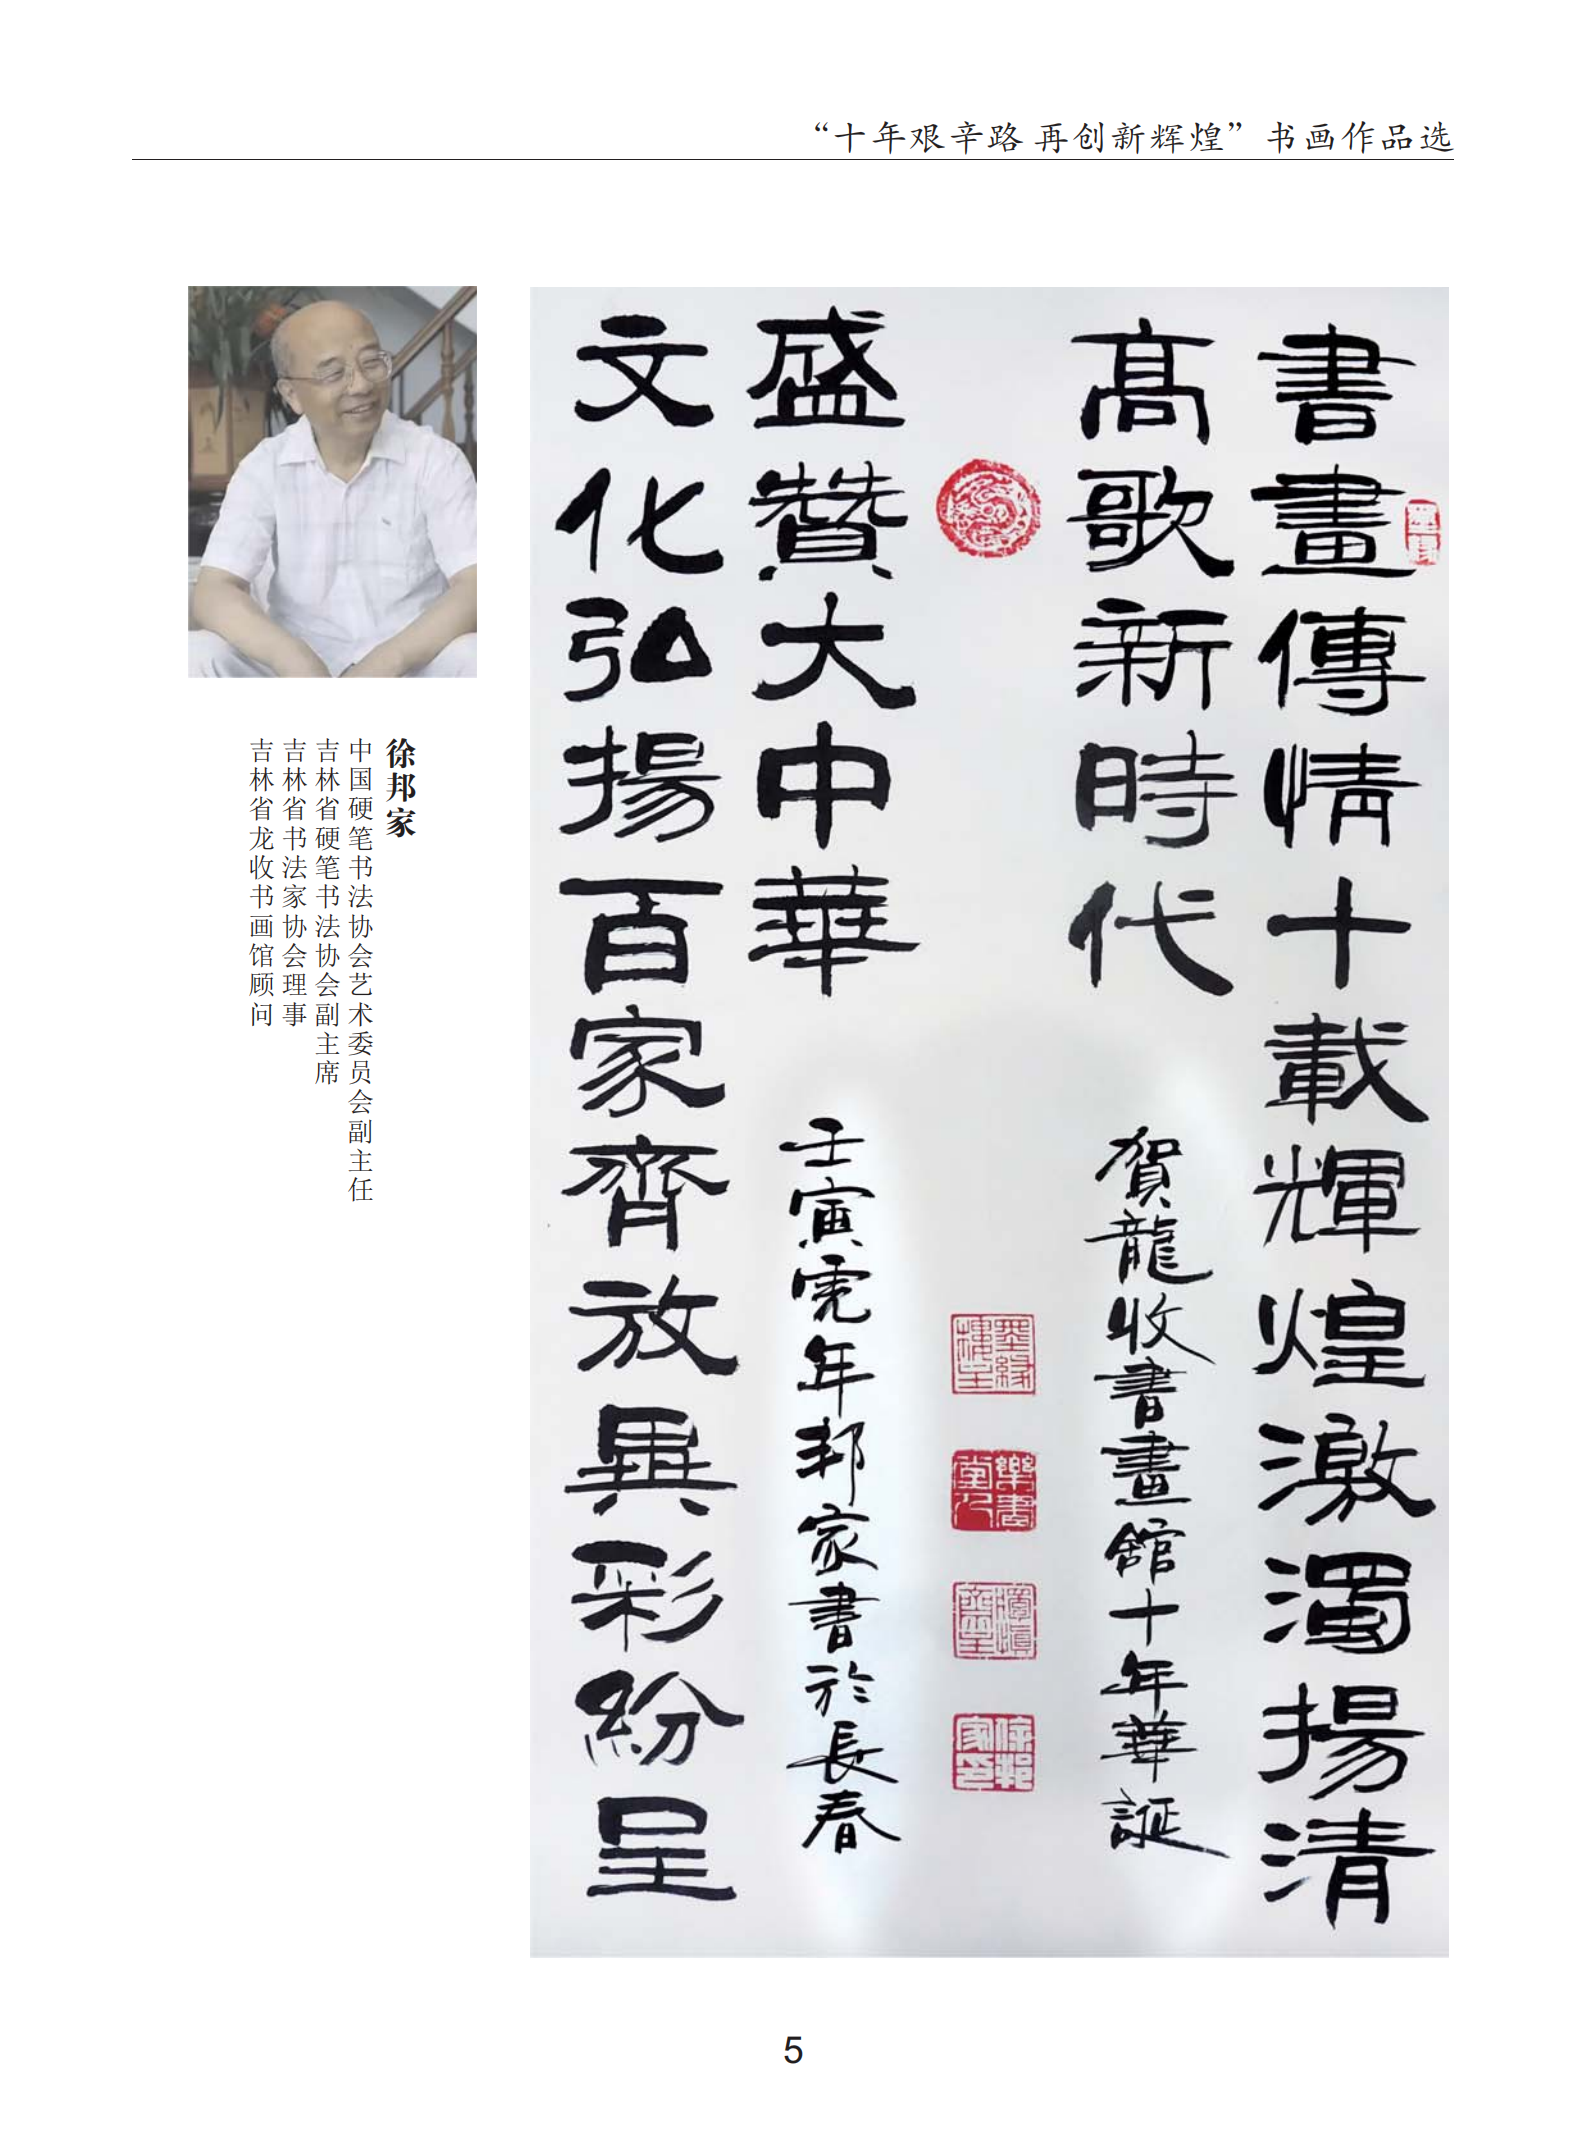 “十年艰辛路 再创新辉煌”书画作品选
徐邦家
中国硬笔书法协会艺术委员会副主任
吉林省硬笔书法协会副主席
吉林省书法家协会理事
吉林省龙收书画馆顾问
書畫傳情十載輝煌激濁揚清
高歌新時代
賀龍收書畫館十年華誕
盛贊大中華
壬寅虎年邦家書於長春
文化弘揚百家齊放異彩紛呈
徐邦家印
5